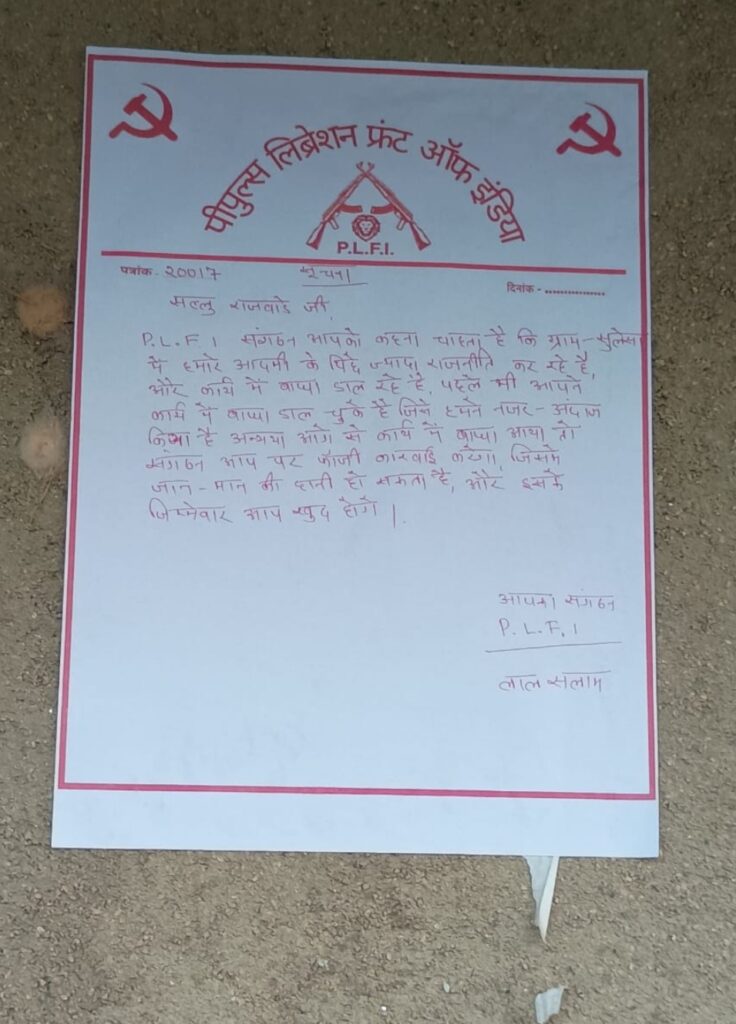 पीपुल्स लिब्रेशन फ्रंट ऑफ इंडिया
P.L.F.I.
पत्रांक - 20017 सूचना
दिनांक - ................
सल्लु राजवाडे जी,
P.L.F.I संगठन आपको कहना चाहता है कि ग्राम-
में हमारे आदमी के पिछे ज्यादा राजनीति कर रहे है,
और कार्य में बाधा डाल रहे है, पहले भी आपने
कार्य में बाधा डाल चुके है जिसे हमने नजर-अंदाज
किया है अन्यथा आगे से कार्य में बाधा आया तो
संगठन आप पर फौजी कारवाई करेगा, जिसमे
जान-माल की हानी हो सकता है, और इसके
जिम्मेवार आप खुद होगे |
आपका संगठन
P.L.F.I
लाल सलाम